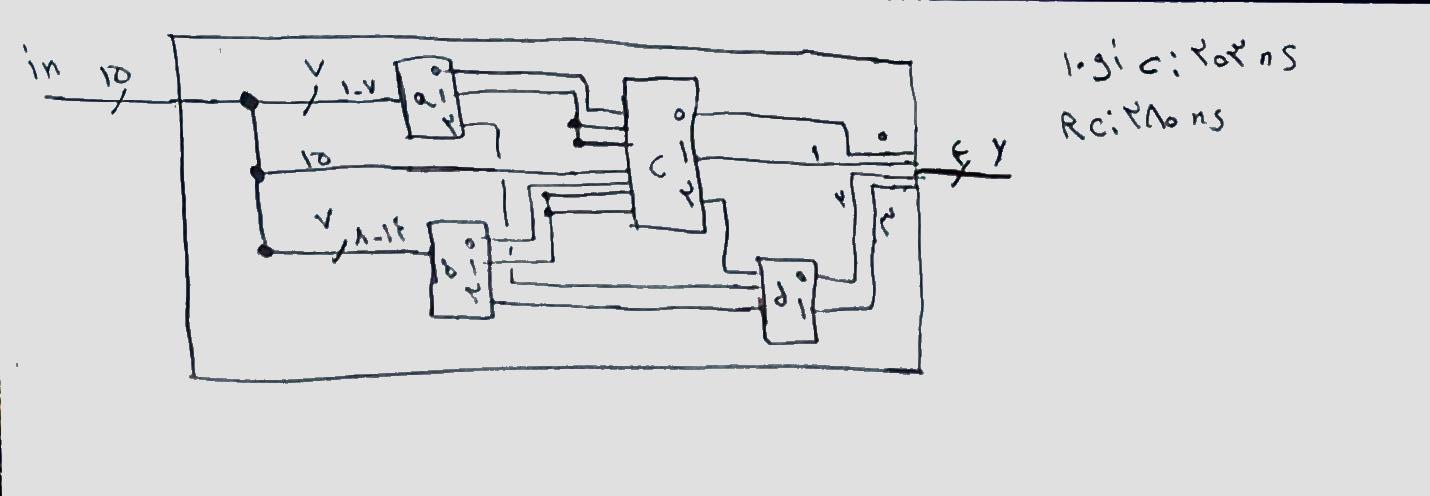 in
۱۵
۷
۱-۷
a
۰
۱
۲
۱۵
۷
۸-۱۴
b
۰
۱
۲
c
۰
۱
۲
d
۰
۱
۰
۱
۲
۳
۴
y
logic: ۲۰۲ ns
RC: ۲۸۰ ns